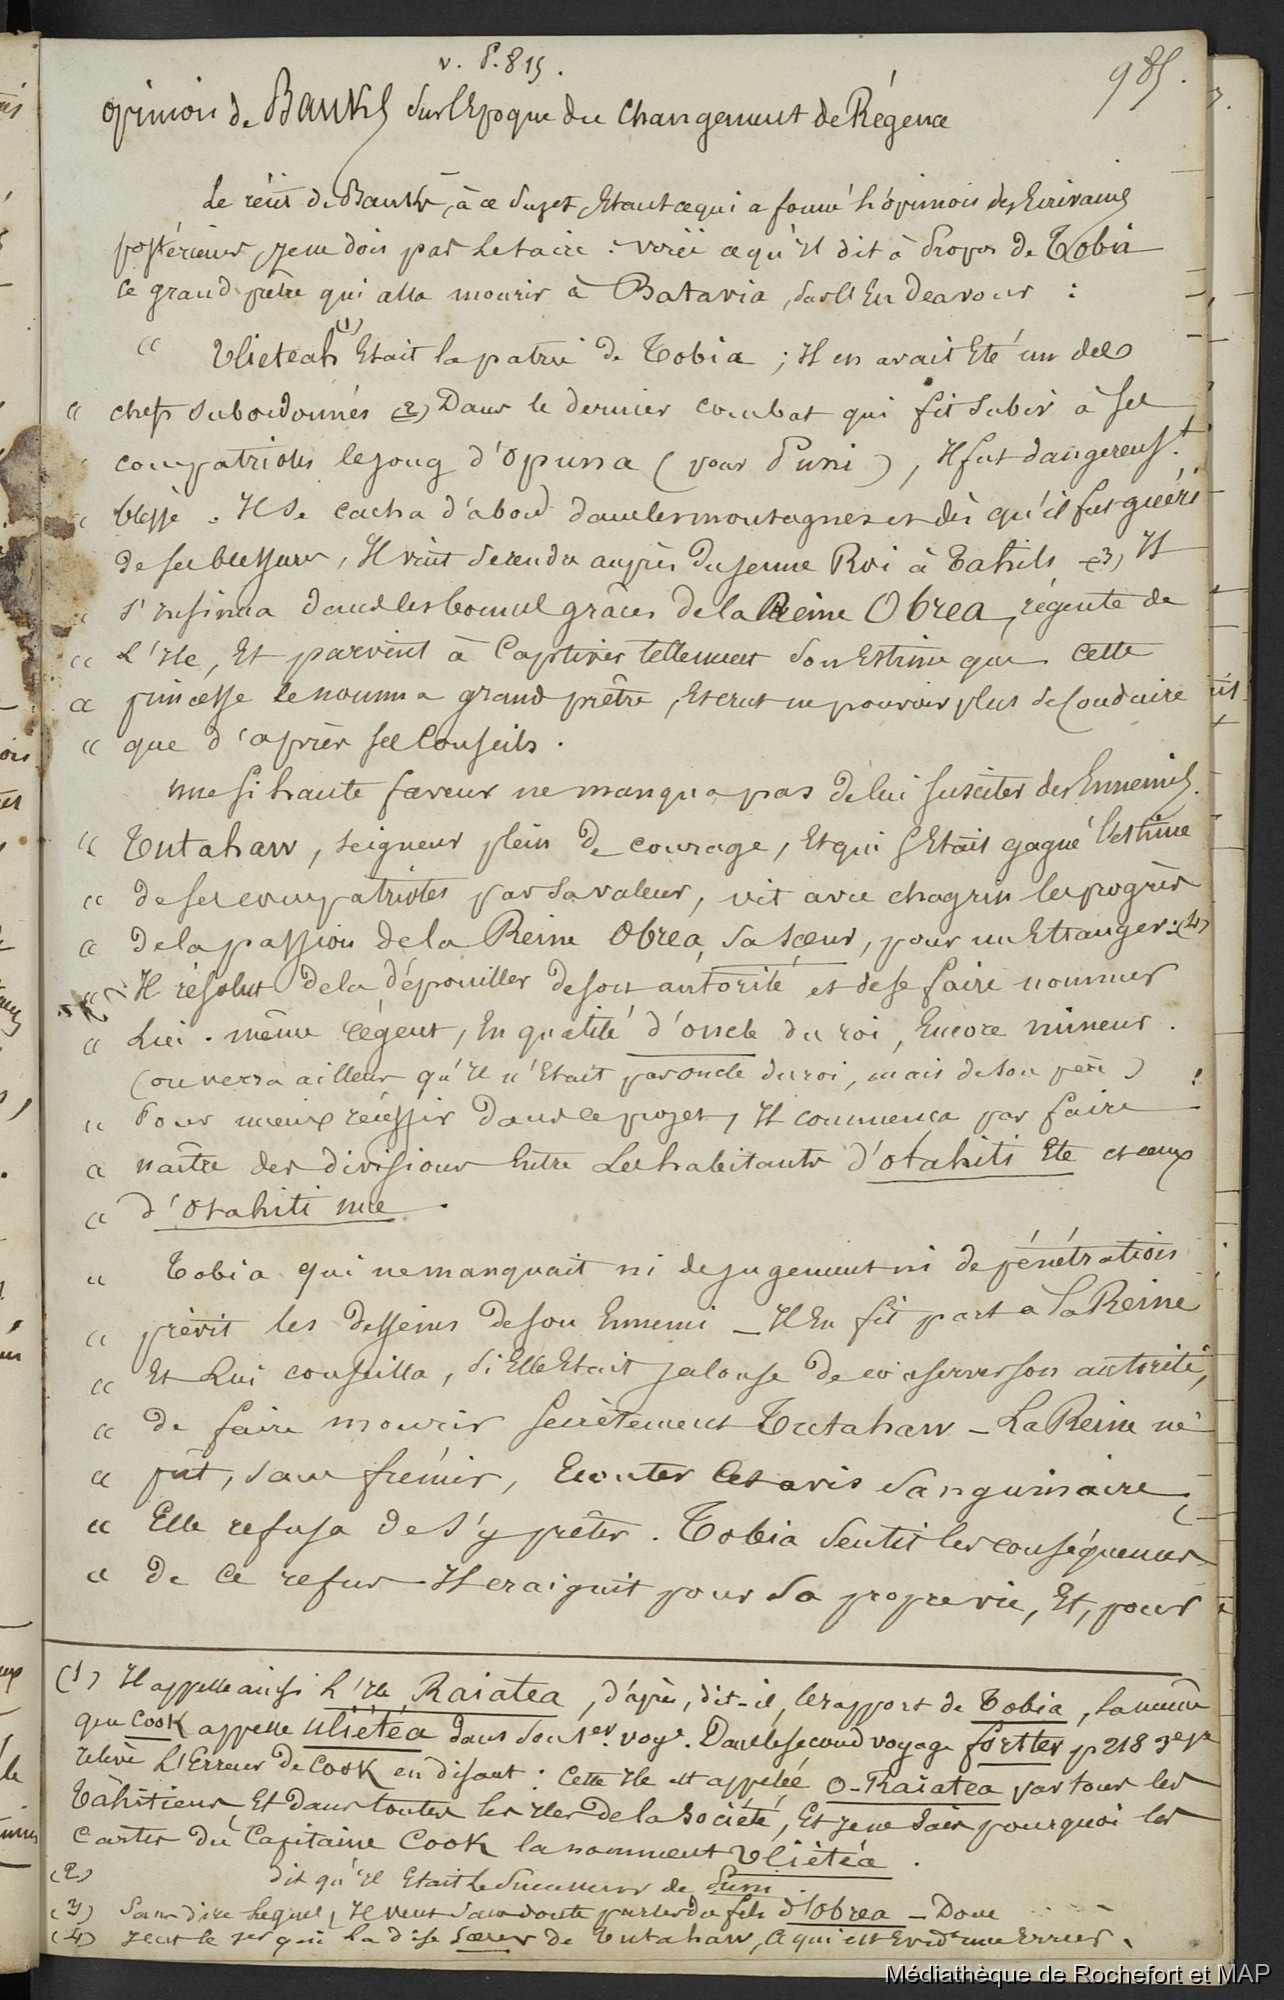 v. P. 815.
985.
opinion de Banks sur l'Epoque du changement de Régence
Le récit de Banks, à ce sujet, Etant ce qui a formé l'opinion des Ecrivains
postérieurs, je ne dois pas le taire : voici ce qu'il dit à propos de Tobia
le grand prêtre qui alla mourir à Batavia, sur l'Endeavour :
" Ulieteah (1) Etait la patrie de Tobia ; Il en avait Eté un des
" chefs subordonnés (2) Dans le dernier combat qui fit subir à ses
" compatriotes le joug d'Opuna (pour Puni), Il fut dangereust.
" blessé. Il se cacha d'abord dans les montagnes et dès qu'il fut guéri
de ses blessures, Il vint se rendre auprès du jeune Roi à Tahiti (3) Il
" s'insinua dans les bonnes grâces de la Reine Obrea, régente de
" L'Ile, Et parvint à captiver tellement son Estime que cette
" princesse le nomma grand prêtre, Et crut ne pouvoir plus se conduire
" que d'après ses conseils.
une si haute faveur ne manqua pas de lui susciter des Ennemis.
" Tutahaw, seigneur plein de courage, Et qui s'Etait gagné l'estime
" de ses compatriotes par sa valeur, vit avec chagrin les progrès
" de la passion de la Reine Obrea, sa soeur, pour un Etranger : (4)
" Il résolut de la dépouiller de son autorité et de se faire nommer
" Lui-même régent, En qualité d'oncle du roi, Encore mineur.
(on verra ailleurs qu'Il n'Etait pas oncle du roi, mais de son père) !
" Pour mieux réussir dans ce projet, Il commença par faire
" naître des divisions Entre Les habitants d'otahiti Ete et ceux
" d'Otahiti nue.
" Tobia qui ne manquait ni de jugement ni de pénétration
" prévit les desseins de son Ennemi _ Il En fit part à la Reine
" Et Lui conseilla, si Elle Etait jalouse de conserver son autorité,
" de faire mourir secrètement Tutahaw _ La Reine ne
" put, sans frémir, Ecouter cet avis sanguinaire,
" Elle refusa de s'y prêter. Tobia sentit les conséquences
" de ce refus _ Il craignit pour sa propre vie, Et, pour
(1) Il appelle ainsi L'Ile Raiatea, d'après, dit-il, le rapport de Tobia, la même
que Cook appelle uliétéa dans son 1er. voye. Dans le second voyage forster p 218
relève L'Erreur de Cook en disant : cette Ile est appelée O-Raiatea par tous les
Tahitiens, Et dans toutes les Iles de la Société, Et je ne sais pourquoi les
cartes du Capitaine Cook la nomment Uliétéa.
(2) dit qu'Il Etait le successeur de Puni.
(3) Sans dire lequel, Il veut sans doute parler du fils d'Obrea _ Donc
(4) c'est le 1er qui la dise soeur de Tutahaw, ce qui est Evidt. une Erreur.
Médiathèque de Rochefort et MAP